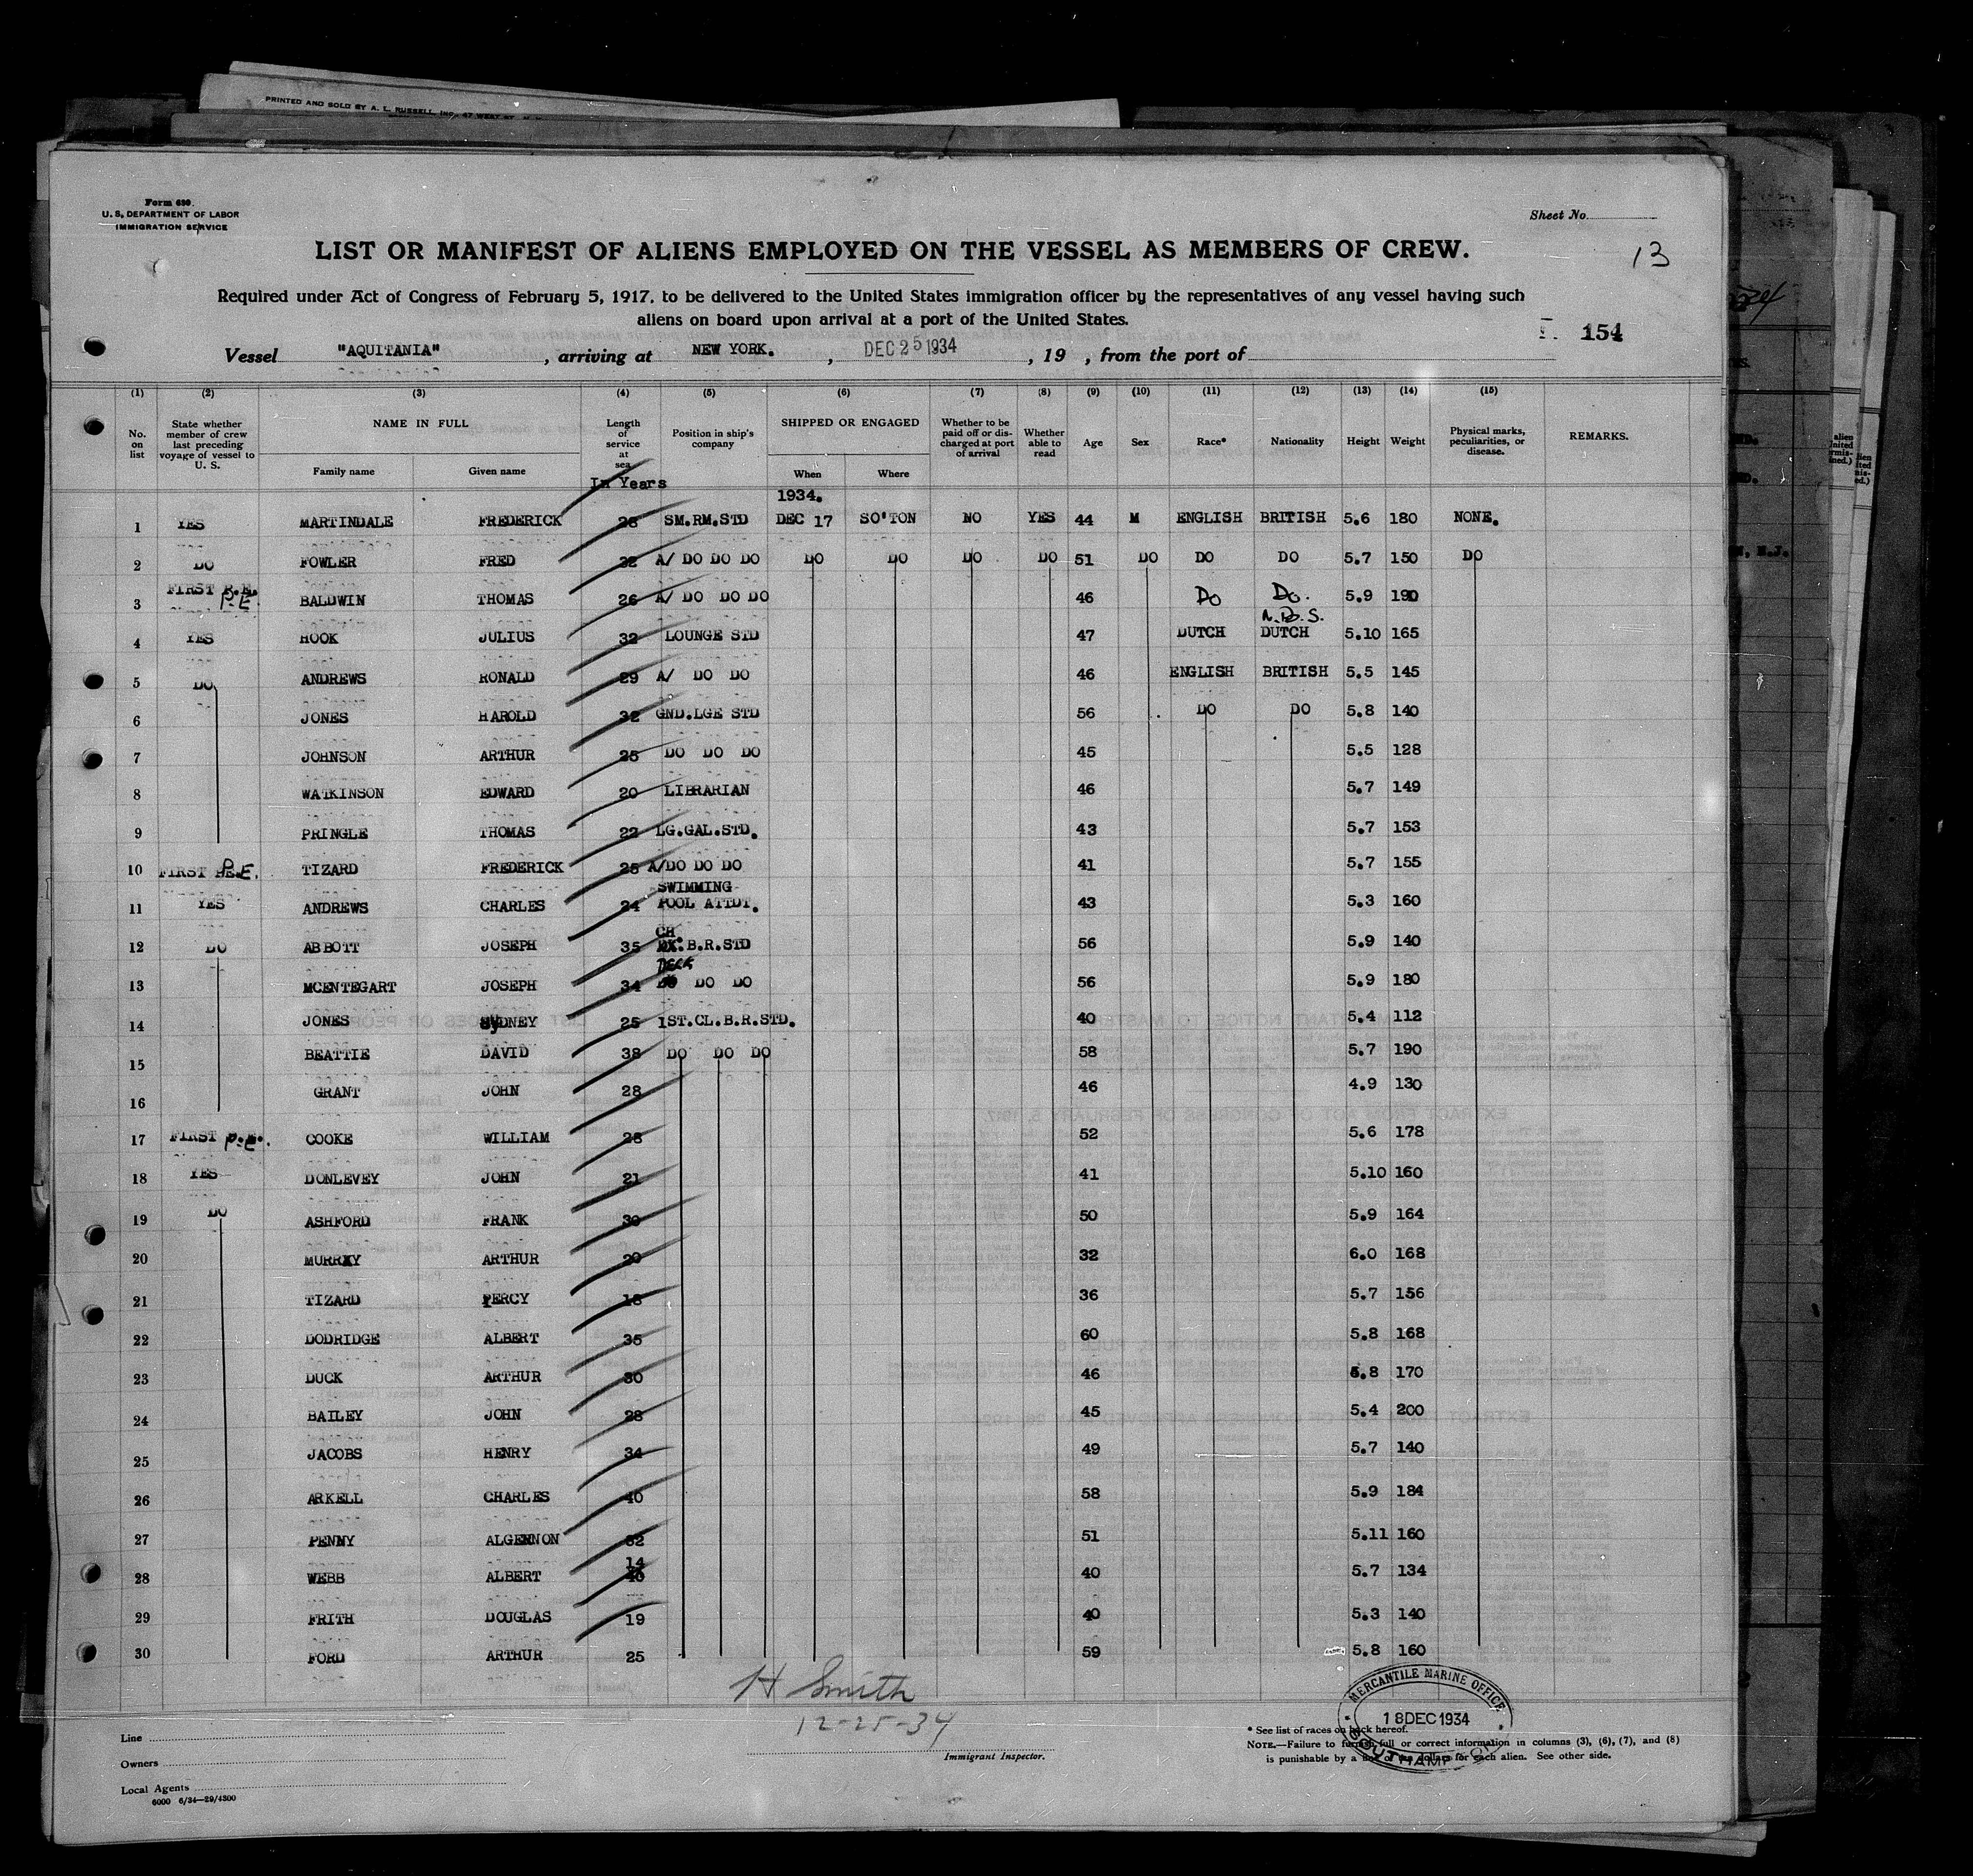 PRINTED AND SOLD BY A. L. RUSSELL, INC., 47 WEST ST.
Form 630.
U. S. DEPARTMENT OF LABOR
IMMIGRATION SERVICE
Sheet No.
LIST OR MANIFEST OF ALIENS EMPLOYED ON THE VESSEL AS MEMBERS OF CREW.
13
Required under Act of Congress of February 5, 1917, to be delivered to the United States immigration officer by the representatives of any vessel having such
aliens on board upon arrival at a port of the United States.
154
Vessel "AQUITANIA" , arriving at NEW YORK. , DEC 25 1934 , 19 , from the port of
(1) (2) (3) (4) (5) (6) (7) (8) (9) (10) (11) (12) (13) (14) (15)
No. on list
State whether member of crew last preceding voyage of vessel to U. S.
NAME IN FULL
Family name Given name
Length of service at sea
In Years
Position in ship's company
SHIPPED OR ENGAGED
When Where
Whether to be paid off or discharged at port of arrival
Whether able to read
Age
Sex
Race*
Nationality
Height
Weight
Physical marks, peculiarities, or disease.
REMARKS.
1934.
1 YES MARTINDALE FREDERICK 28 SM.RM.STD DEC 17 SO'TON NO YES 44 M ENGLISH BRITISH 5.6 180 NONE.
2 DO FOWLER FRED 32 A/ DO DO DO DO DO DO DO 51 DO DO DO 5.7 150 DO
3 FIRST P.E. BALDWIN THOMAS 26 A/ DO DO DO 46 Do Do. 5.9 190
N.B.S.
4 YES HOOK JULIUS 32 LOUNGE STD 47 DUTCH DUTCH 5.10 165
5 DO ANDREWS RONALD 29 A/ DO DO 46 ENGLISH BRITISH 5.5 145
6 JONES HAROLD 32 GND.LGE STD 56 DO DO 5.8 140
7 JOHNSON ARTHUR 25 DO DO DO 45 5.5 128
8 WATKINSON EDWARD 20 LIBRARIAN 46 5.7 149
9 PRINGLE THOMAS 22 LG.GAL.STD. 43 5.7 153
10 FIRST P.E. TIZARD FREDERICK 25 A/DO DO DO 41 5.7 155
11 YES ANDREWS CHARLES 24 SWIMMING POOL ATTDT. 43 5.3 160
12 DO ABBOTT JOSEPH 35 CH B.R.STD 56 5.9 140
13 MCENTEGART JOSEPH 34 DECK DO DO 56 5.9 180
14 JONES SYDNEY 25 1ST.CL.B.R.STD. 40 5.4 112
15 BEATTIE DAVID 38 DO DO DO 58 5.7 190
16 GRANT JOHN 28 46 4.9 130
17 FIRST P.E. COOKE WILLIAM 28 52 5.6 178
18 YES DONLEVEY JOHN 21 41 5.10 160
19 DO ASHFORD FRANK 30 50 5.9 164
20 MURRAY ARTHUR 20 32 6.0 168
21 TIZARD PERCY 18 36 5.7 156
22 DODRIDGE ALBERT 35 60 5.8 168
23 DUCK ARTHUR 30 46 5.8 170
24 BAILEY JOHN 28 45 5.4 200
25 JACOBS HENRY 34 49 5.7 140
26 ARKELL CHARLES 40 58 5.9 184
27 PENNY ALGERNON 32 51 5.11 160
28 WEBB ALBERT 14 40 5.7 134
29 FRITH DOUGLAS 19 40 5.3 140
30 FORD ARTHUR 25 59 5.8 160
H Smith
12-25-34
Immigrant Inspector.
MERCANTILE MARINE OFFICE
18 DEC 1934
SOUTHAMPTON
Line
Owners
Local Agents
6000 6/34—29/4300
* See list of races on back hereof.
NOTE.—Failure to furnish full or correct information in columns (3), (6), (7), and (8)
is punishable by a fine of ten dollars for each alien. See other side.